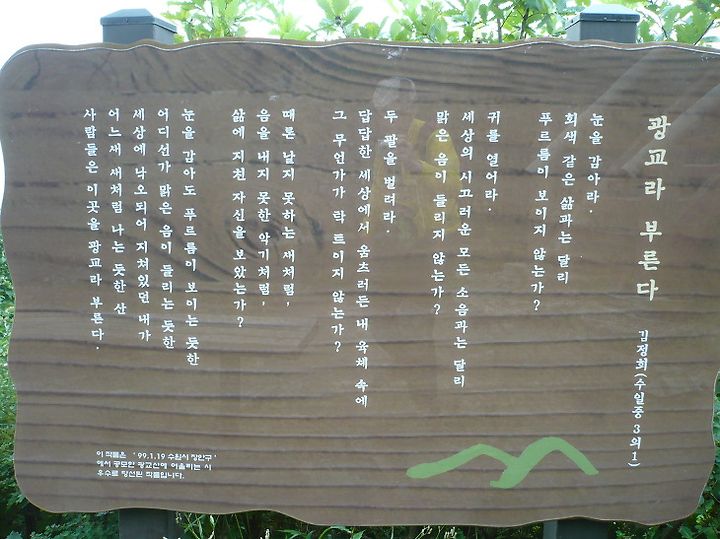 광교라 부른다
김정희(수일중 3의1)
눈을 감아라.
회색 같은 삶과는 달리
푸르름이 보이지 않는가?
귀를 열어라.
세상의 시끄러운 모든 소음과는 달리
맑은 음이 들리지 않는가?
두 팔을 벌려라.
답답한 세상에서 움츠러든 내 육체 속에
그 무언가가 탁 트이지 않는가?
때론 날지 못하는 새처럼,
음을 내지 못한 악기처럼,
삶에 지친 자신을 보았는가?
눈을 감아도 푸르름이 보이는 듯한
어디선가 맑은 음이 들리는 듯한
세상에 낙오되어 지쳐있던 내가
어느새 새처럼 나는 듯한 산
사람들은 이곳을 광교라 부른다.
이 작품은 '99.1.19 수원시 장안구
에서 공모한 광교산에 어울리는 시
우수로 당선된 작품입니다.